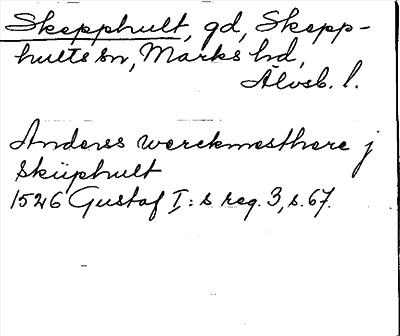 Skepphult, gd, Skepp-
hults sn, Marks hd,
Älvsb. l.
Anders werckmesthere j
Sküphult
1526 Gustaf I:s reg. 3, s. 67.